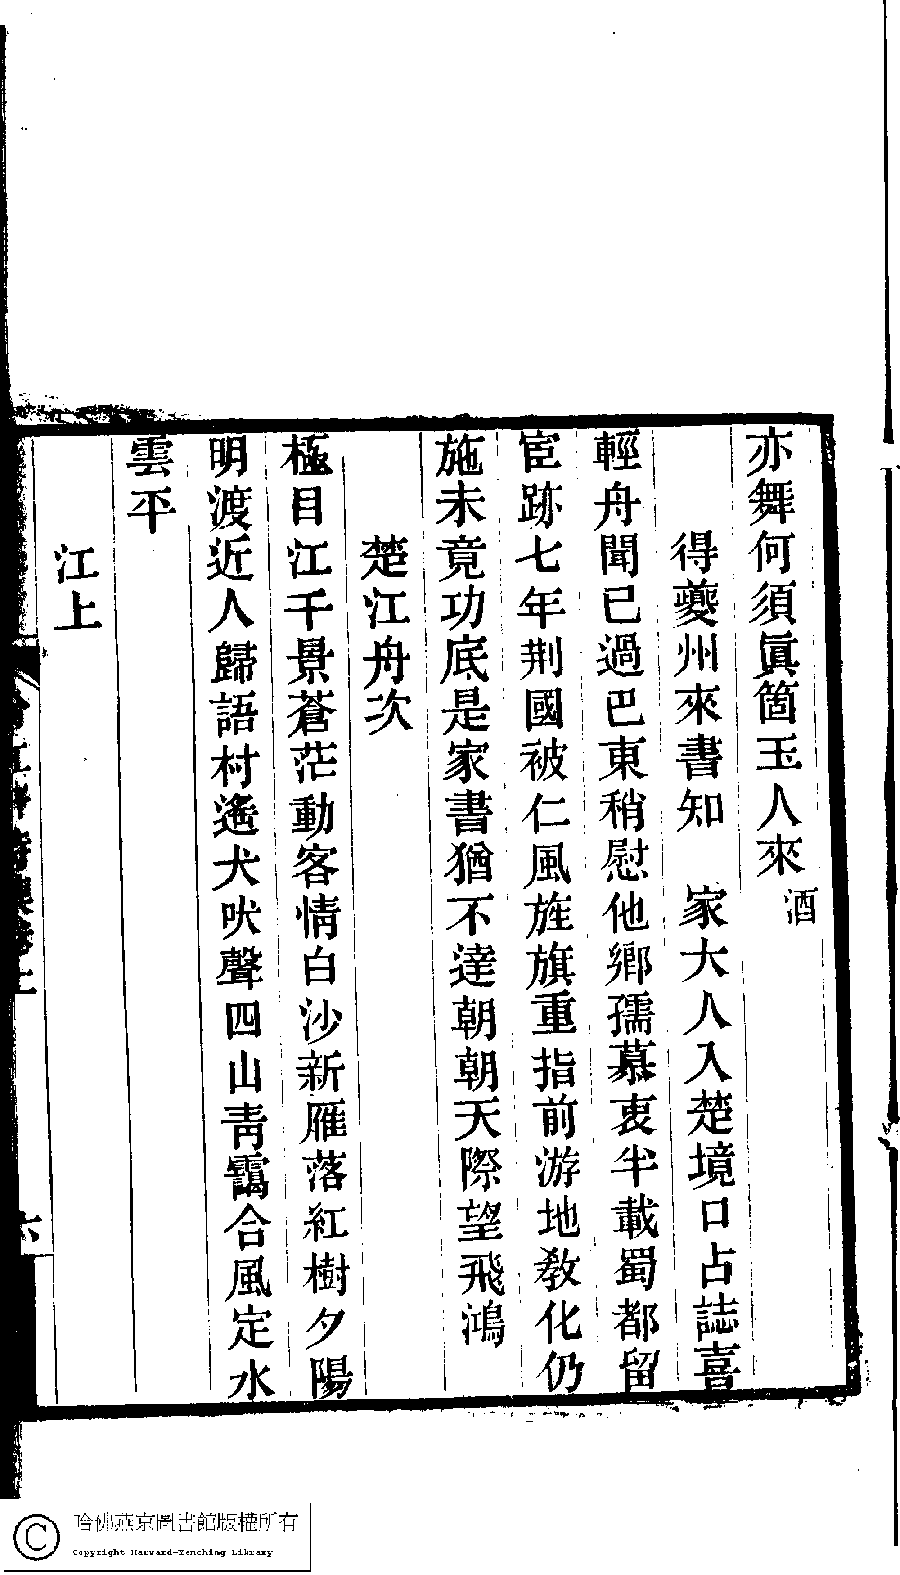 亦舞何須眞箇玉人來酒
得夔州來書知　家大人入楚境口占誌喜
輕舟聞已過巴東稍慰他鄉孺慕衷半載蜀都留
宦跡七年荆國被仁風旌旗重指前游地敎化仍
施未竟功底是家書猶不達朝朝天際望飛鴻
楚江舟次
極目江千景蒼茫動客情白沙新雁落紅樹夕陽
明渡近人歸語村遙犬吠聲四山靑靄合風定水
雲平
江上
六
哈佛燕京圖書館版權所有
Copyright Harvard-Yenching Library